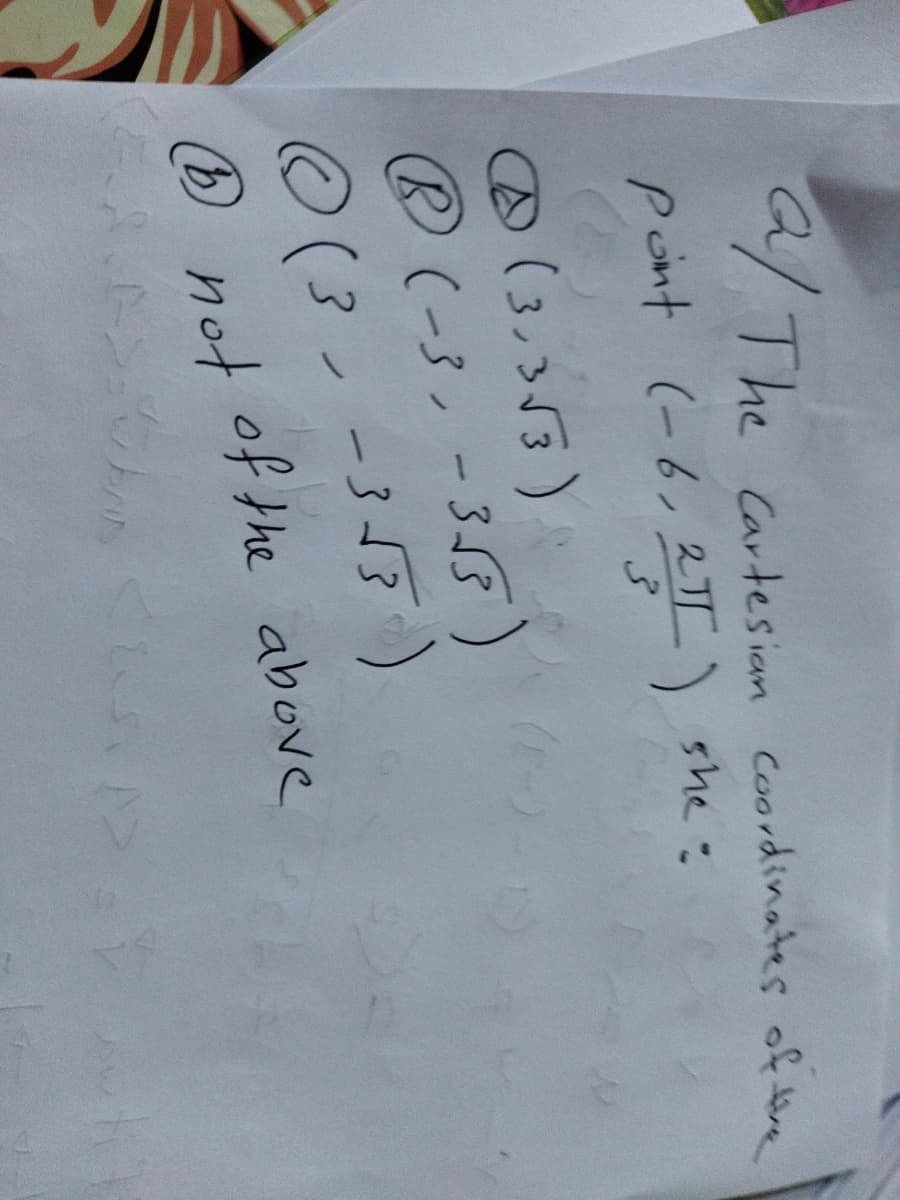 Q/ The Cartesian coordinates of the
point (-6, 2π/3) she:
Ⓐ (3, 3√3)
Ⓑ (-3, -3√3)
Ⓒ (3, -3√3)
Ⓓ not of the above